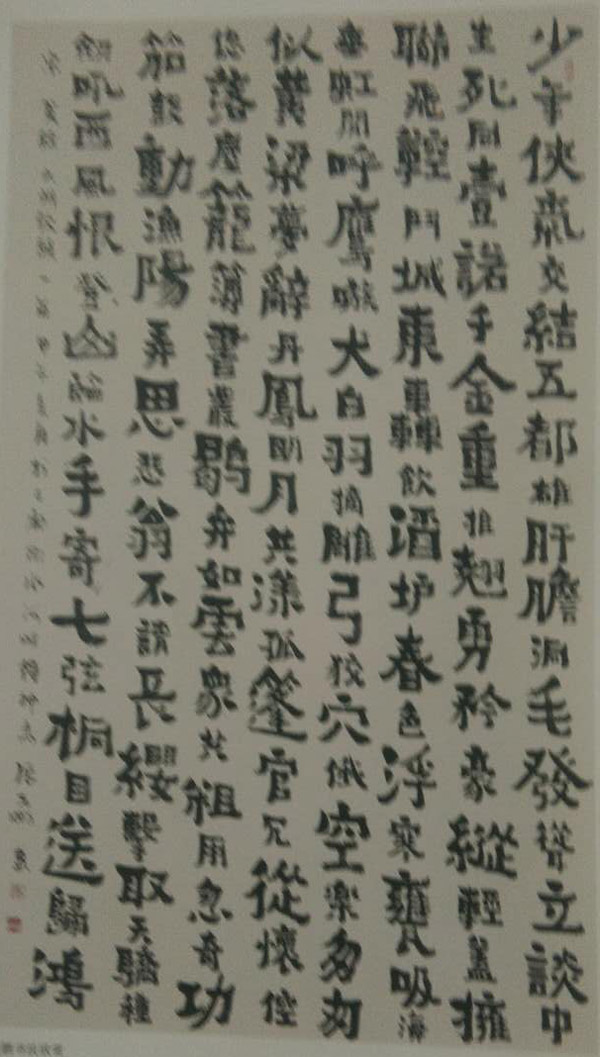 少年俠氣交結五都雄肝膽洞毛發聳立談中
生死同壹諾千金重推翹勇矜豪縱輕蓋擁
聯飛鞚鬥城東轟飲酒垆春色浮寒甕吸海
垂虹閒呼鷹嗾犬白羽摘雕弓狡穴俄空楽匆匆
似黃粱夢辭丹鳳明月共漾孤篷官冗從懷倥
傯落塵籠薄書叢鶡弁如雲眾共粗用忽奇功
笳鼓動漁陽弄思悲翁不請長纓擊取天驕種
劍吼西風恨登山臨水手寄七弦桐目送歸鴻
宋 賀鑄 六州歌頭一首 甲午